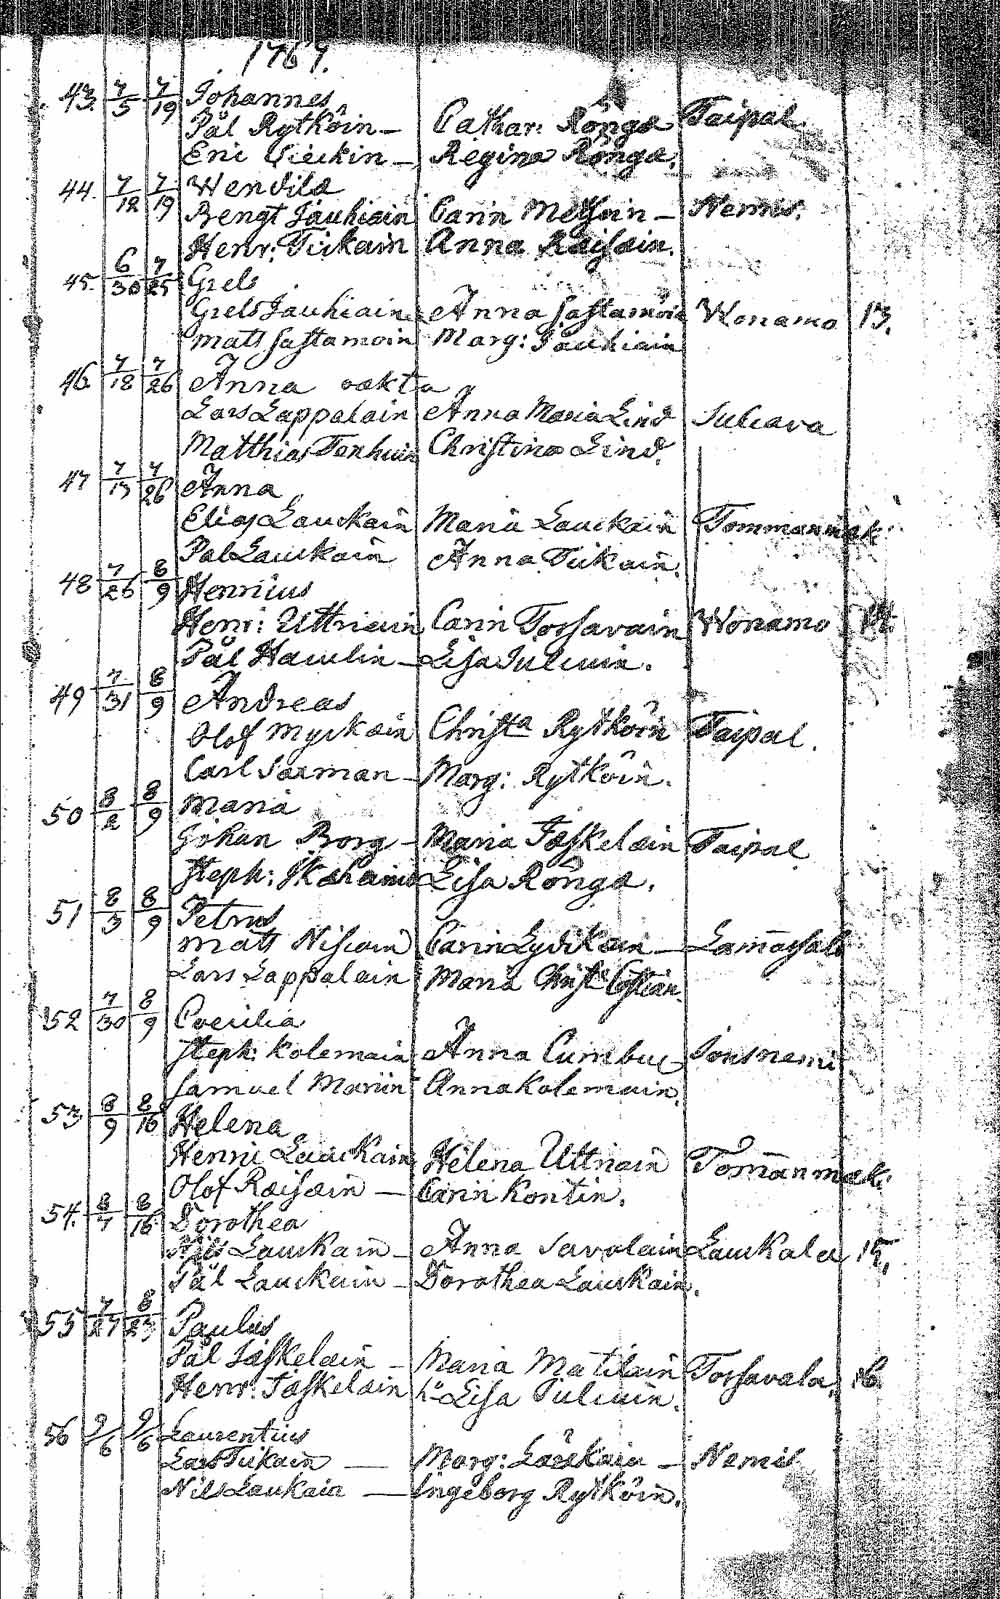 1769.
43. 7/5 7/19 Johannes
Pål Rytköin — Cathar: Rönga Taipal.
Eric — Regina Rönga.
44. 7/12 7/19 Wendila
Bengt Jauhiain Carin Metsoin — Nemis.
Henr: Tiikain Anna Räisäin.
45. 6/30 7/25 Grels
Grels Jauhiain Anna Sastamoin Wonamo 13.
Matt Sastamoin Marg: Jauhiain
46. 7/18 7/26 Anna oäkta
Lars Lappalain Anna Maria Lind Sulcava
Matthias Tenhuin Christina Lind.
47 7/13 7/26 Anna
Elias Lauckain Maria Lauckain Tommanmäk
Pål Lauckain Anna Tiikain.
48 7/26 8/9 Henricus
Henr: Uttriain Carin Torsavain Wonamo 14.
Pål Hamlin — Lisa Sulcuin.
49 7/31 8/9 Andreas
Olof Myckäin Christa Rytköin Taipal.
Carl Sarman — Marg: Rytköin.
50 8/2 8/9 Maria
Johan Borg — Maria Jäskeläin Taipal
Steph: Lisa Rönga.
51 8/3 8/9 Petrus
Matt Niscain Carin Lydikäin — Lamassalo
Lars Lappalain Maria Christ:
52 7/30 8/9 Coecilia
Steph: Kolemain Anna Cumbu Sonsnemi
Samuel Moniin Anna Kolemain.
53 8/9 8/16 Helena
Henric Lauckain Helena Uttriain Tomanmäk.
Olof Räisäin — Carin Kontin.
54. 8/7 8/16 Dorothea
Nils Lauckain — Anna Savolain Lauckala 15.
Pål Lauckain — Dorothea Lauckain.
55 7/27 8/23 Paulus
Pål Jäskeläin — Maria Matilain Torsavala. 16.
Henr: Jäskeläin h: Lisa Sulcuin.
56 9/6 9/6 Laurentius
Lars Tiikain — Marg: Läskain — Nemis
Nils Laukain — Ingeborg Rytköin.